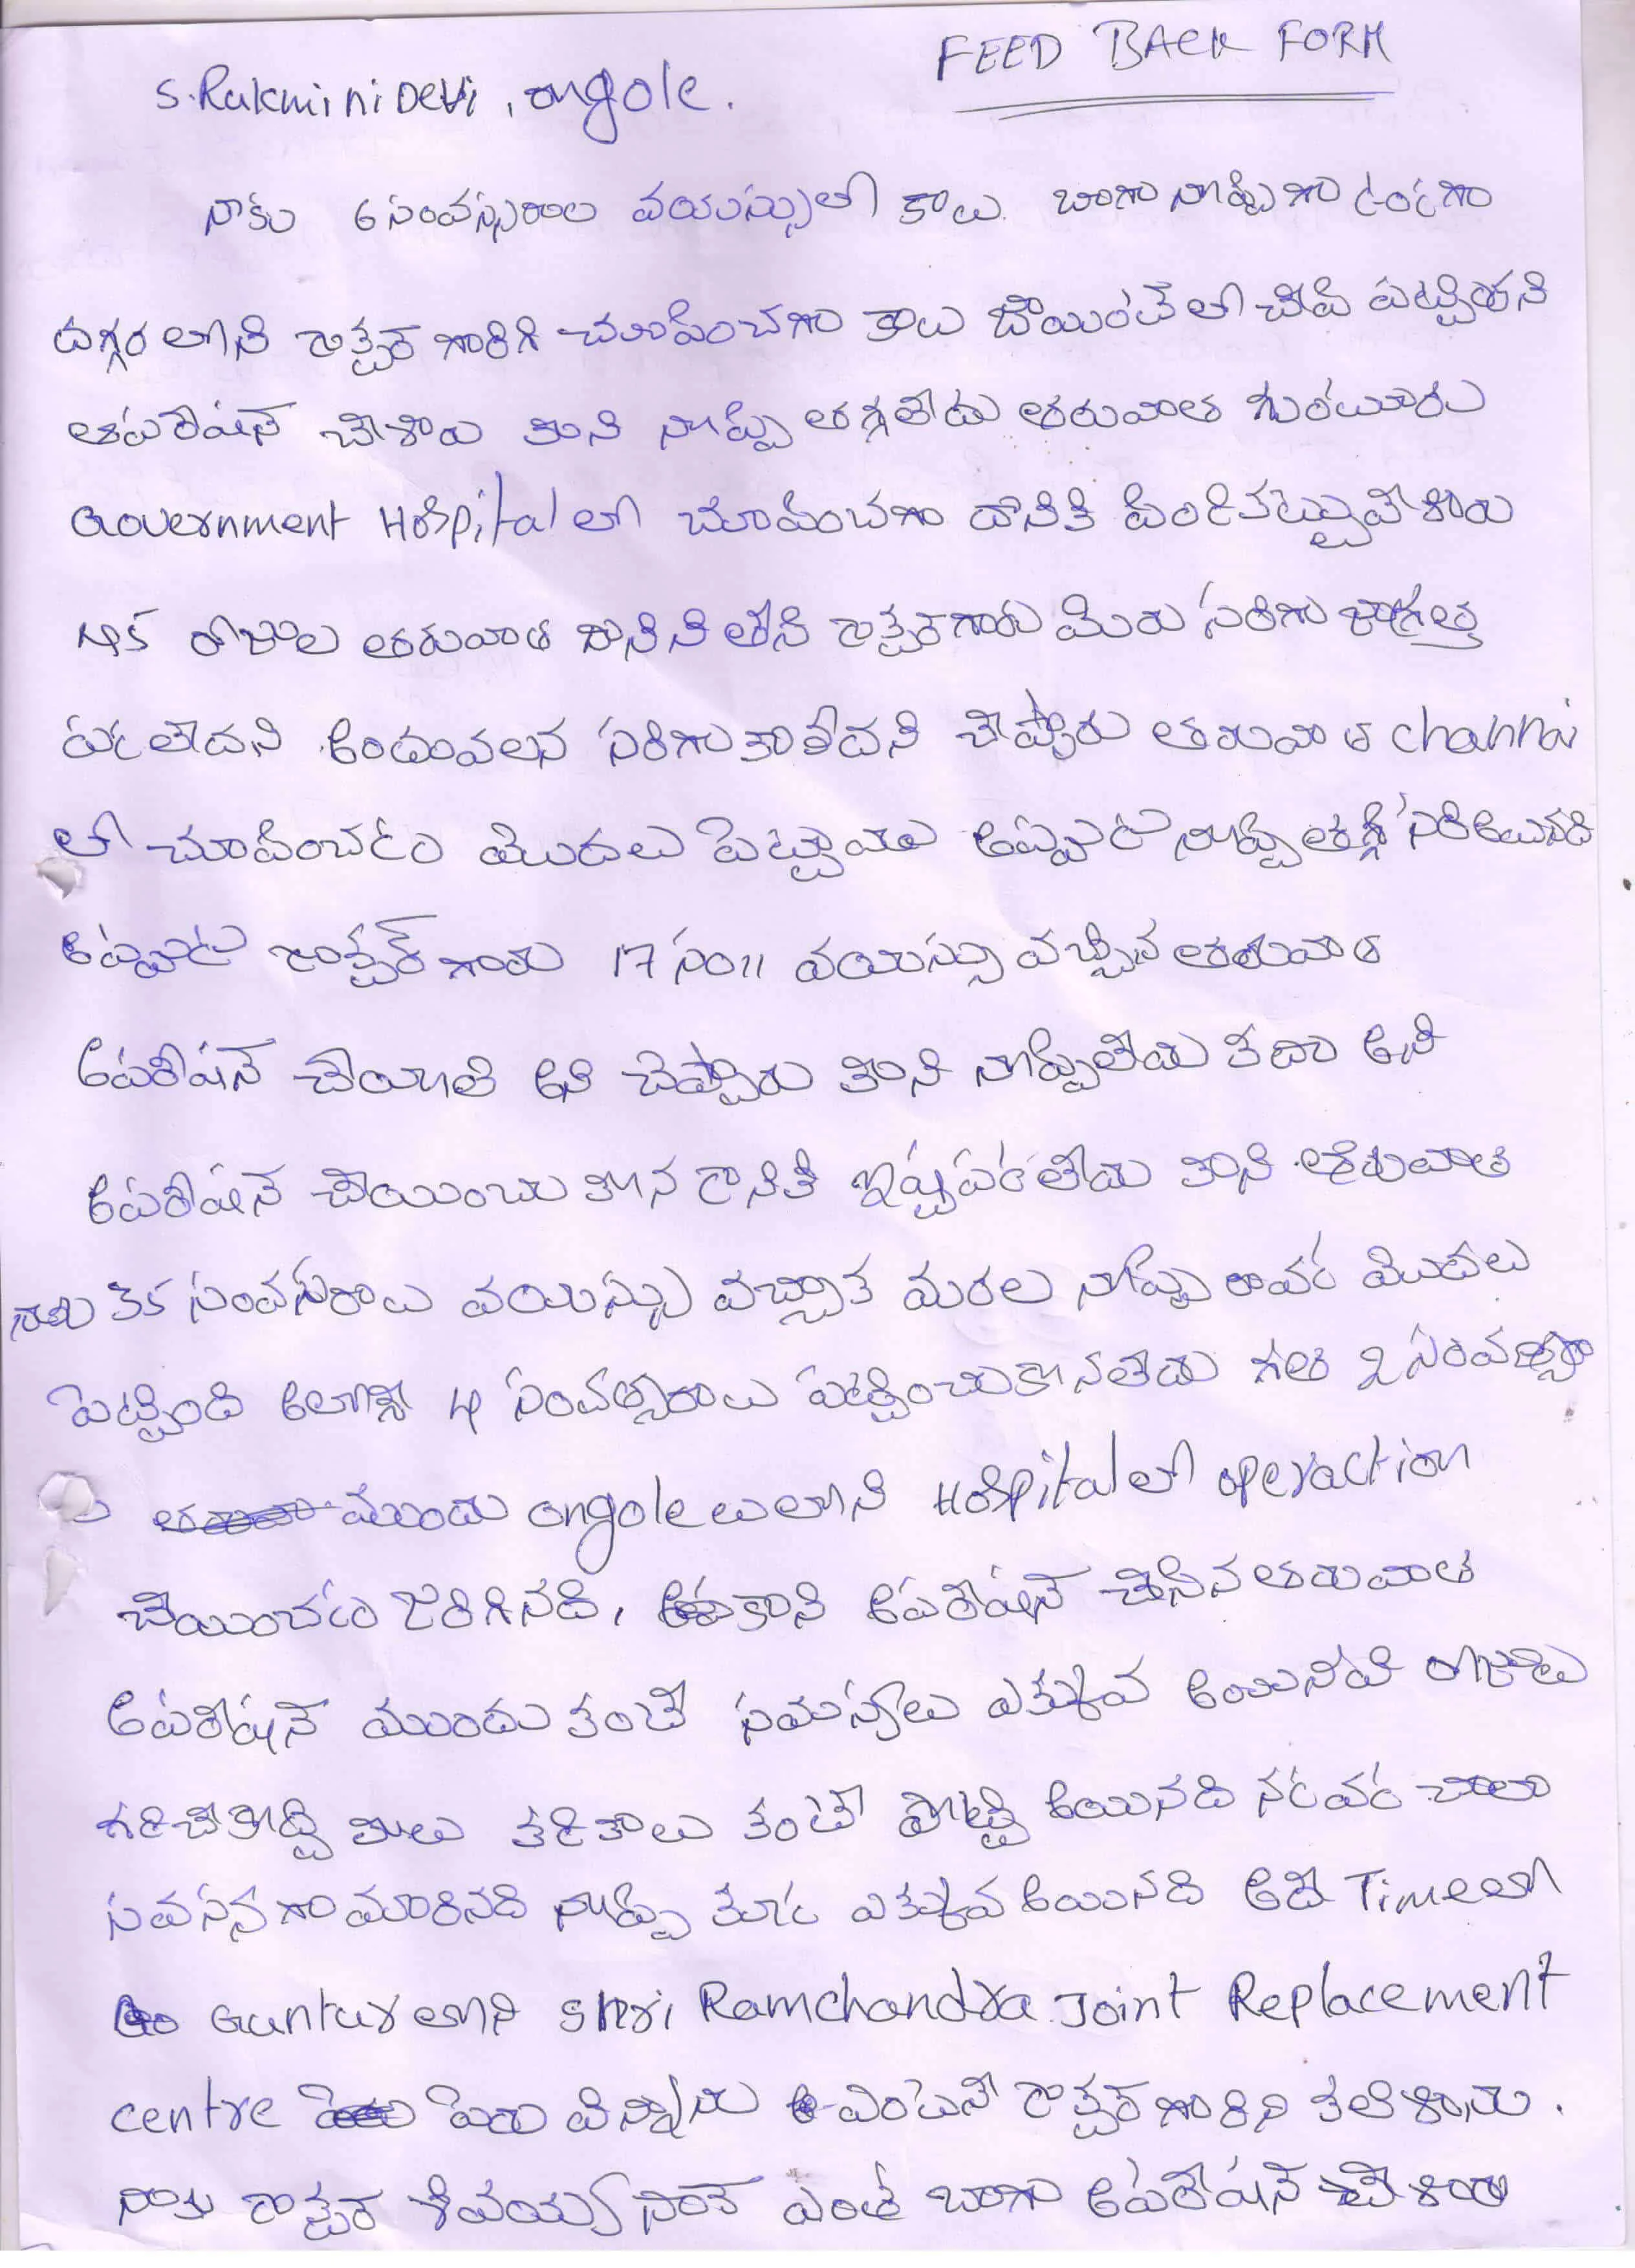 FEED BACK FORM
S. Rukmini Devi, ongole.
నాకు 6 సంవస్సరాల వయస్సులో కాలు బాగా నొప్పిగా ఉండగా
దగ్గర లోని డాక్టర్ గారికి చూపించగా కాలు జాయింట్ లో చీపి పట్టిందని
ఆపరేషన్ చేశారు కాని నొప్పి తగ్గలేదు తరువాత గుంటూరు
Government Hospital లో చూపించగా దానికి పిండికట్టువేశారు
45 రోజుల తరువాత డాక్టర్ గారు మీరు సరిగా జాగ్రత్త
లేదని అందువలన సరిగా కాలేదని చెప్పారు తరువాత channai
లో చూపించడం మొదలు పెట్టాము అప్పుడు నొప్పి తగ్గి సరి అయినది
అప్పుడు డాక్టర్ గారు 17 సం॥ వయస్సు వచ్చిన తరువాత
ఆపరేషన్ చేయాలి అని చెప్పారు కాని నొప్పిలేదు కదా అని
ఆపరేషన్ చేయించుకొన డానికి ఇష్టపడలేదు కాని తరువాత
నాకు 35 సంవసరాలు వయస్సు వచ్చాక మరల నొప్పి రావడం మొదలు
పెట్టింది అలాగే 4 సంవత్సరాలు పట్టించుకొనలేదు గత 2 సంవత్సరాల
ముందు ongole లోని Hospital లో operaction
చేయించడం జరిగినది, కాని ఆపరేషన్ చేసిన తరువాత
ఆపరేషన్ ముందు కంటే సమస్యలు ఎక్కువ అయినవి రోజులు
గడిచేకొద్ది కాలు కుడికాలు కంటే పొట్టి అయినది నడవడం చాలా
గా మారినది నొప్పి కూడ ఎక్కువ అయినది అదే Time లో
Guntur లోని Shri Ramchandra Joint Replacement
centre పేరు విన్నాను వెంటనే డాక్టర్ గారిని కలిశాను.
నాకు డాక్టర్ శివయ్య సార్ ఎంతో బాగా ఆపరేషన్ చేశారు